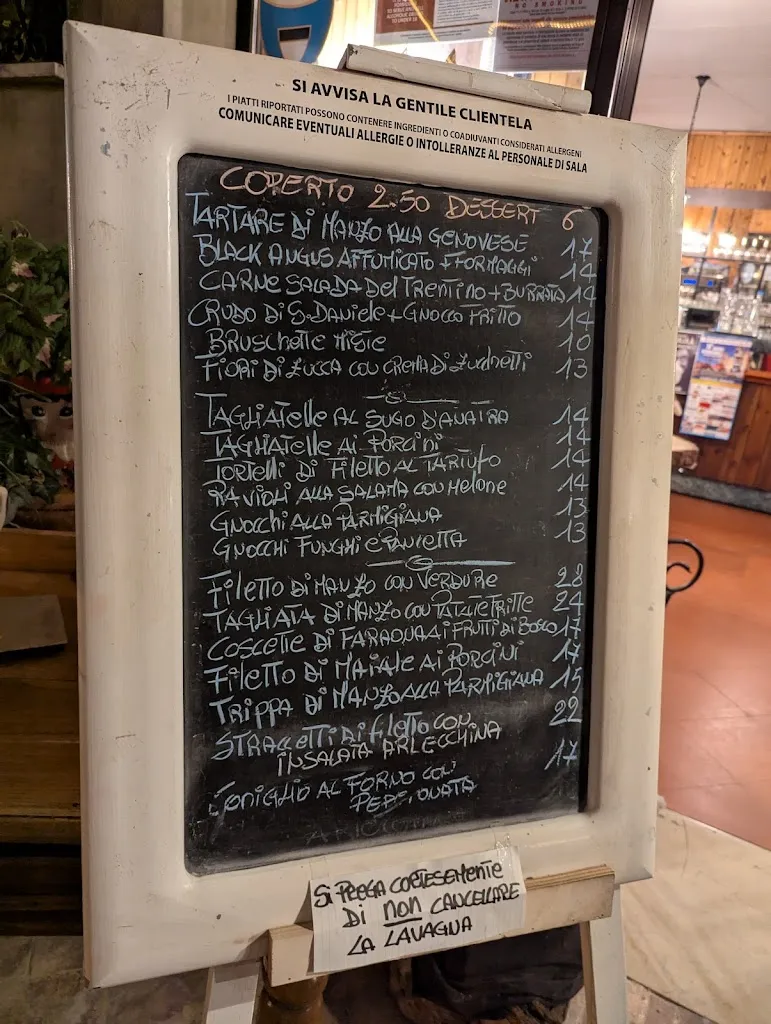 SI AVVISA LA GENTILE CLIENTELA
I PIATTI RIPORTATI POSSONO CONTENERE INGREDIENTI O COADIUVANTI CONSIDERATI ALLERGENI
COMUNICARE EVENTUALI ALLERGIE O INTOLLERANZE AL PERSONALE DI SALA
COPERTO 2.50 DESSERT 6
TARTARE DI MANZO ALLA GENOVESE 17
BLACK ANGUS AFFUMICATO + FORMAGGI 14
CARNE SALADA DEL TRENTINO + BURRATA 14
CRUDO DI S. DANIELE + GNOCCO FRITTO 14
BRUSCHETTE MISTE 10
FIORI DI ZUCCA CON CREMA DI ZUCCHETTI 13
TAGLIATELLE AL SUGO D'ANATRA 14
TAGLIATELLE AI PORCINI 14
TORTELLI DI FILETTO AL TARTUFO 14
RAVIOLI ALLA SALAMA CON MELONE 14
GNOCCHI ALLA PARMIGIANA 13
GNOCCHI FUNGHI E PANCETTA 13
FILETTO DI MANZO CON VERDURE 28
TAGLIATA DI MANZO CON PATATE FRITTE 24
COSCETTE DI FARAONA AI FRUTTI DI BOSCO 17
FILETTO DI MAIALE AI PORCINI 17
TRIPPA DI MANZO ALLA PARMIGIANA 15
STRACCETTI DI FILETTO CON 22
INSALATA ARLECCHINA
CONIGLIO AL FORNO CON 17
PEPERONATA
SI PREGA CORTESEMENTE
DI NON CANCELLARE
LA LAVAGNA